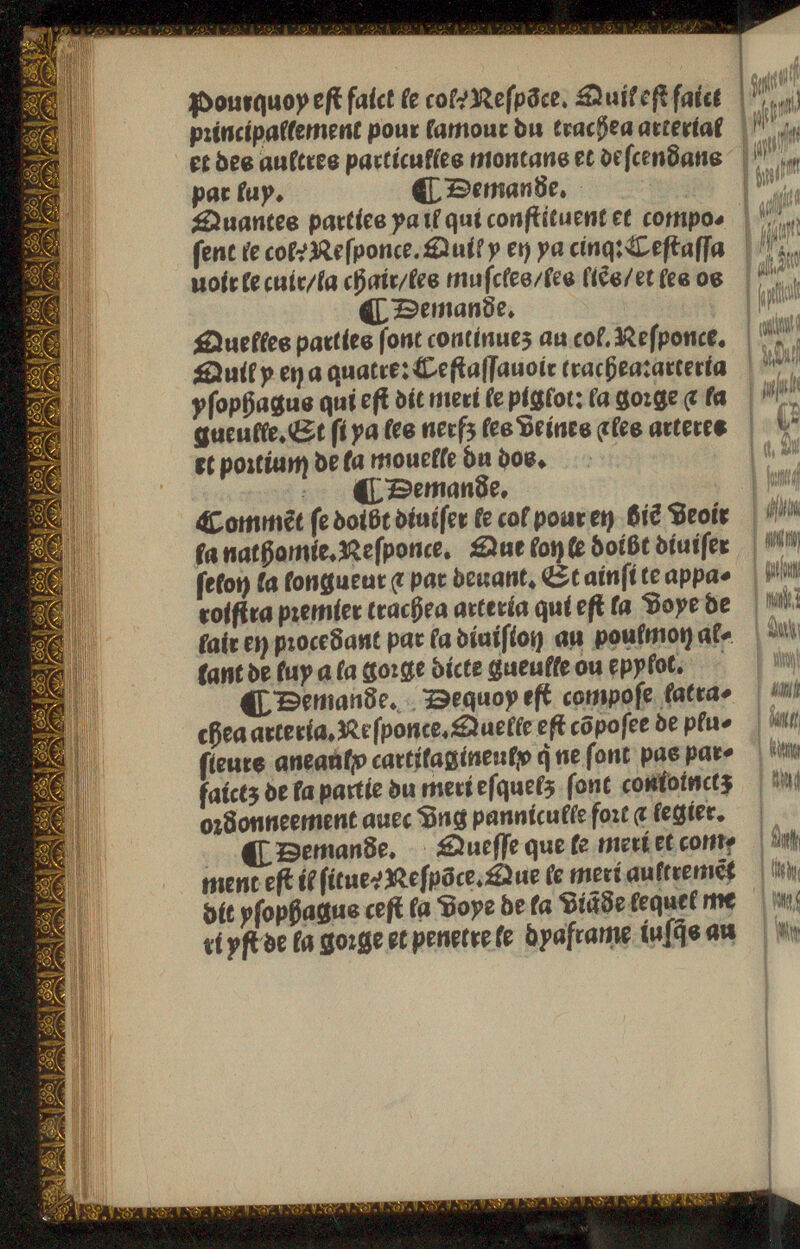 Pourquoy eſt faict le col? Reſpõce. Quil eſt faict
principallement pour lamour du trachea arterial
et des aultres particulles montans et deſcendans
par luy. ¶ Demande.
Quantes parties ya il qui conſtituent et compo⸗
ſent le col? Reſponce. Quil y en ya cinq: Ceſtaſſa
uoir le cuir/la chair/les muſcles/les liẽs/et les os
¶ Demande.
Quelles parties ſont continuez au col. Reſponce.
Quil y en a quatre: Ceſtaſſauoir trachea:arteria
yſophagus qui eſt dit meri le piglot: la gorge ⁊ la
gueulle. Et ſi ya les nerfz les veines ⁊les arteres
et portium de la mouelle du dos.
¶ Demande.
Commẽt ſe doibt diuiſer le col pour en biẽ veoir
la nathomie. Reſponce. Que lon le doibt diuiſer
ſelon la longueur ⁊ par deuant. Et ainſi te appa⸗
roiſtra premier trachea arteria qui eſt la voye de
lair en procedant par la diuiſion au poulmon al⸗
lant de luy a la gorge dicte gueulle ou epylot.
¶ Demande. Dequoy eſt compoſe latra⸗
chea arteria. Reſponce. Quelle eſt cõpoſee de plu⸗
ſieurs aneaulx cartilagineulx q̃ ne ſont pas par⸗
faictz de la partie du meri eſquelz ſont conioinctz
ordonneement auec vng panniculle fort ⁊ legier.
¶ Demande. Queſſe que le meri et com⸗
ment eſt il ſitue? Reſpõce. Que le meri aultremẽt
dit yſophagus ceſt la voye de la viãde lequel me
ri yſt de la gorge et penetre le dyaframe iuſq̃s au